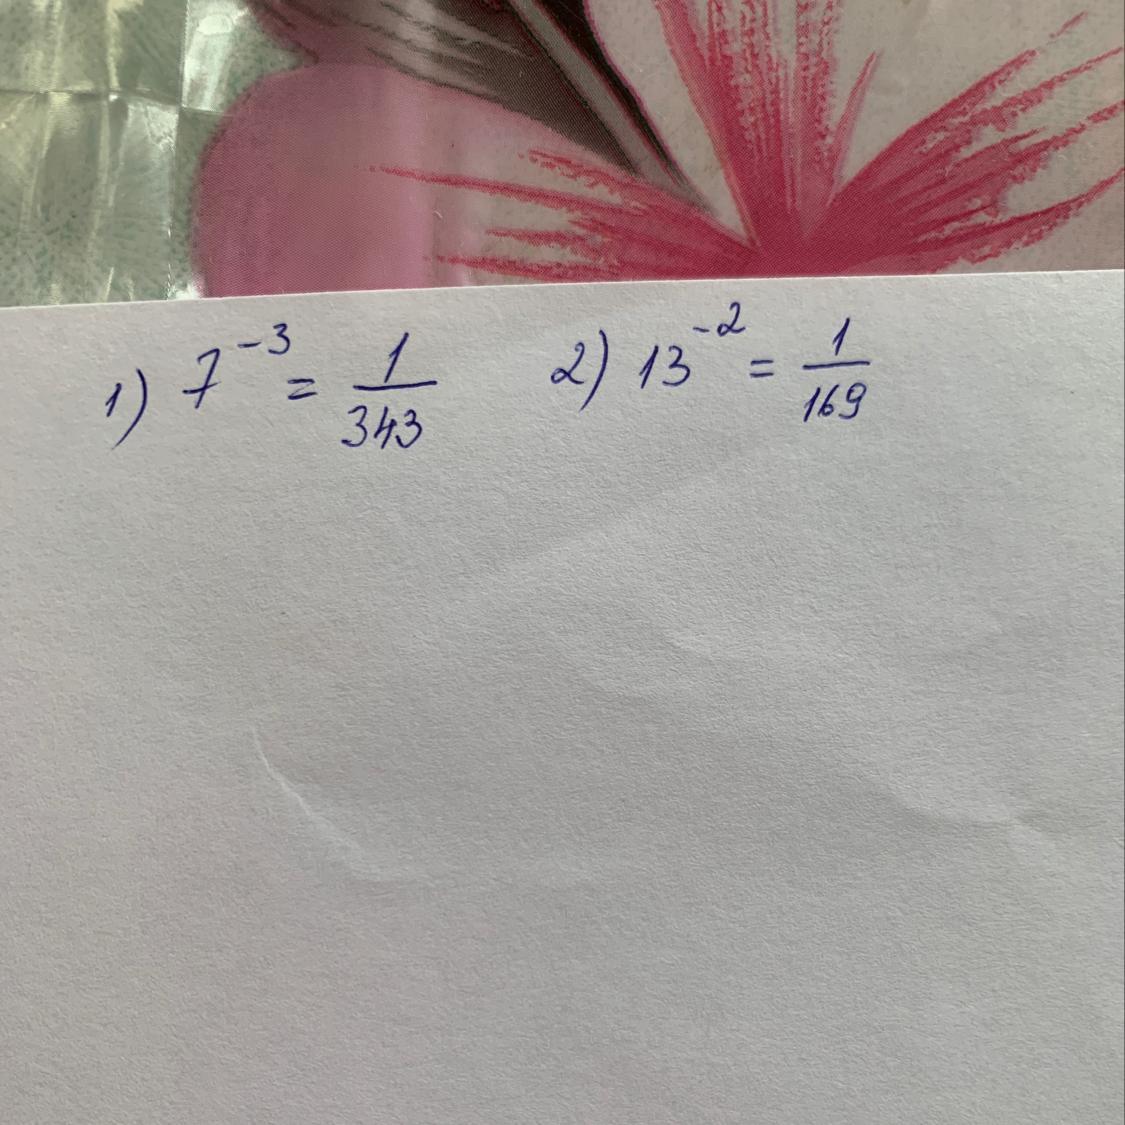 1) 7⁻³ = 1/343 2) 13⁻² = 1/169